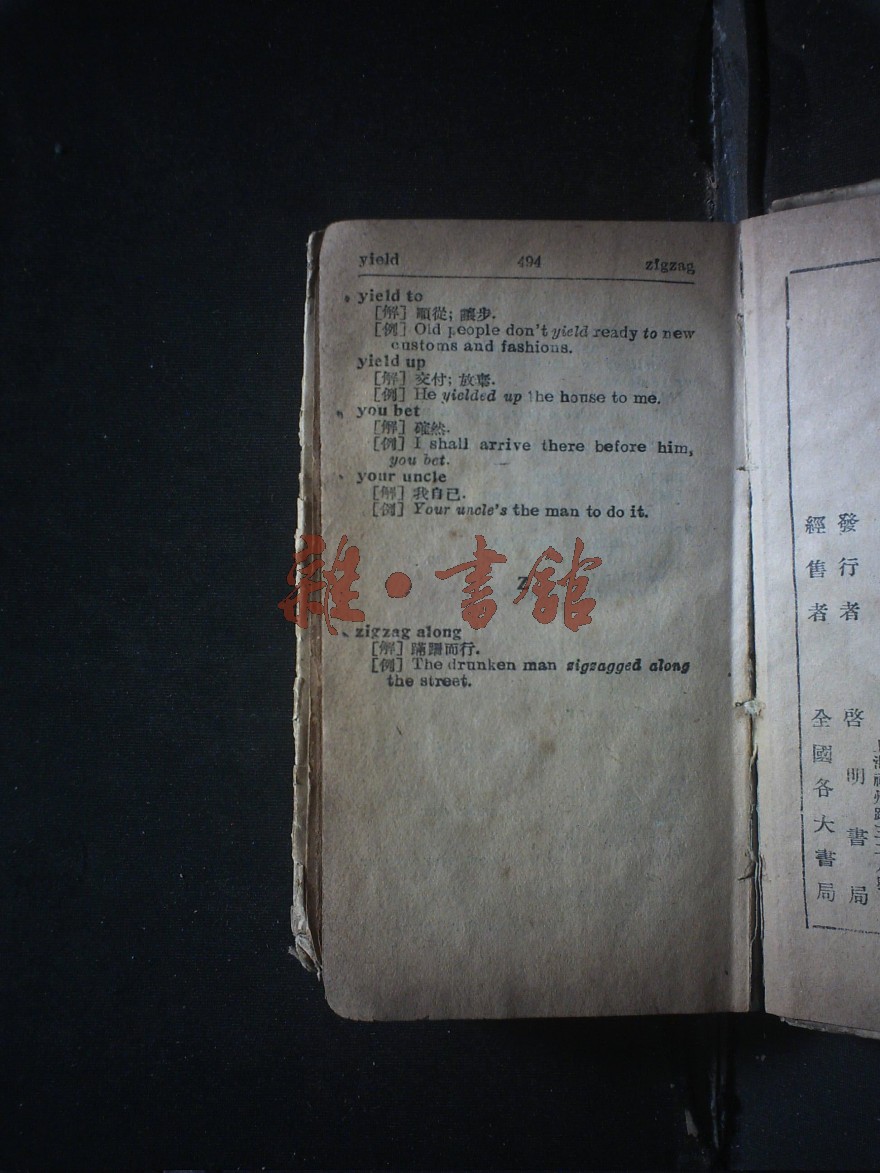 yield 494 zigzag
yield to
[解] 順從; 讓步.
[例] Old people don't yield ready to new
customs and fashions.
yield up
[解] 交付; 放棄.
[例] He yielded up the house to me.
you bet
[解] 確然.
[例] I shall arrive there before him,
you bet.
your uncle
[解] 我自己.
[例] Your uncle's the man to do it.
Z
雜·書館
zigzag along
[解] 蹣跚而行.
[例] The drunken man zigzagged along
the street.
發行者 啓明書局
經售者 全國各大書局